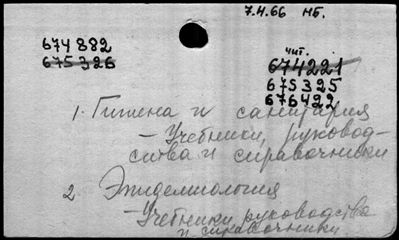 7.4.66 МБ.
674882
675326
чит.
674221
675325
676422
1. Гигиена и санитария
- Учебники, руковод-
ства и справочники
2 Эпидемиология
- Учебники, руководства
и справочники.